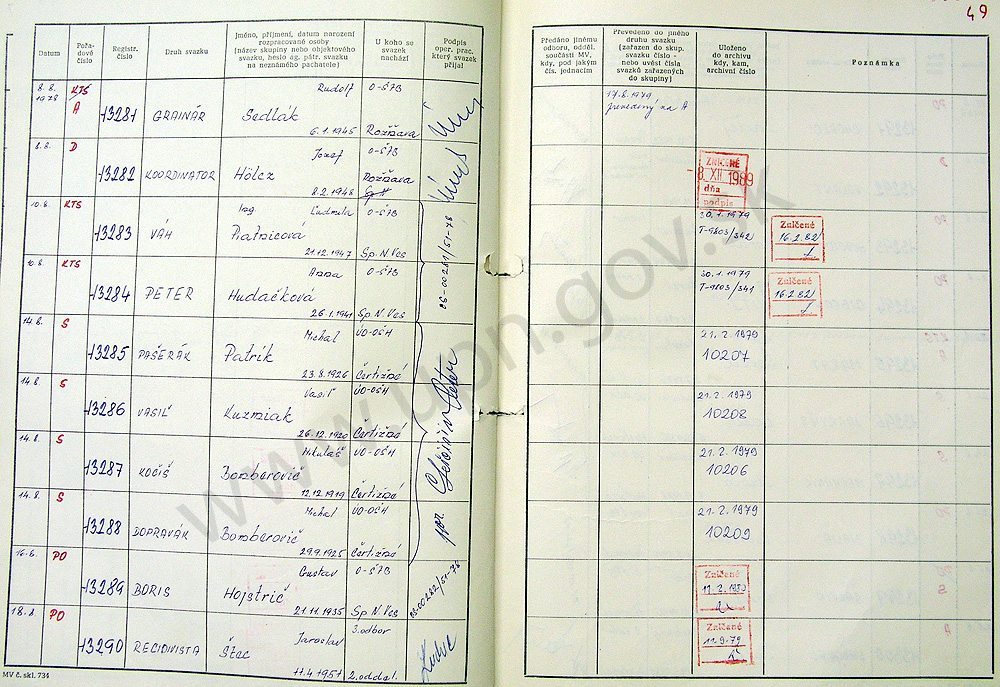 49
Datum
Pořadové číslo
Registr. číslo
Druh svazku
Jméno, příjmení, datum narození rozpracované osoby (název skupiny nebo objektového svazku, heslo ag. pátr. svazku na neznámého pachatele)
U koho se svazek nachází
Podpis oper. prac. který svazek přijal
Předáno jinému odboru, odděl. součásti MV, kdy, pod jakým čís. jednacím
Převedeno do jiného druhu svazku (zařazen do skup. svazku číslo - nebo uvést čísla svazků zařazených do skupiny)
Uloženo do archivu kdy, kam, archivní číslo
Poznámka
8. 8. 1978 KTS A 13281 GRAINÁR Rudolf Sedlák 6.1.1945 O-ŠTB Rožňava
17.8.1979 prevedený na A
8.8. D 13282 KOORDINATOR Jozef Hölcz 8.2.1948 O-ŠTB Rožňava
ZNIČENÉ - 8. XII 1989 dňa podpis
10.8. KTS 13283 VÁH Ing. Ľudmila Platnicová 21.12.1947 O-ŠTB Sp. N. Ves
30.1.1979 T-9803/342 Zničené 16.2.82
10.8. KTS 13284 PETER Anna Hudačková 26.1.1941 O-ŠTB Sp. N. Ves
30.1.1979 T-9803/341 Zničené 16.2.82
14.8. S 13285 PAŠERÁK Michal Patrik 23.8.1926 ÚO-OŠH Čertižné
21.2.1979 10207
14.8. S 13286 VASIĽ Vasiľ Kuzmiak 26.12.1920 ÚO-OŠH Čertižné
21.2.1979 10208
14.8. S 13287 KOČIŠ Mikuláš Bomberovič 12.12.1919 ÚO-OŠH Čertižné
21.2.1979 10206
14.8. S 13288 DOPRAVÁK Michal Bomberovič 29.9.1925 ÚO-OŠH Čertižné
21.2.1979 10209
16.8. PO 13289 BORIS Gustav Hojstrič 21.11.1935 O-ŠTB Sp. N. Ves
Zničené
18.8. PO 13290 RECIDIVISTA Jaroslav Štec 11.4.1951 3.odbor 2.oddel.
Zničené 11.9.79
MV č. skl. 734
www.upn.gov.sk